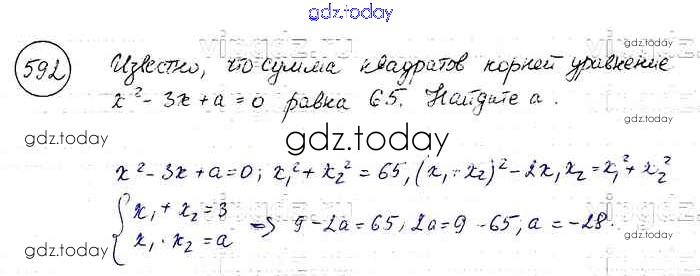 gdz.today
592 Известно, что сумма квадратов корней уравнение
x² - 3x + a = 0 равна 65. Найдите a.
gdz.today
gdz.today
gdz.today
x² - 3x + a = 0; x₁² + x₂² = 65, (x₁ + x₂)² - 2x₁x₂ = x₁² + x₂²
{ x₁ + x₂ = 3
x₁ · x₂ = a => 9 - 2a = 65, 2a = 9 - 65, a = -28.
gdz.today
gdz.today